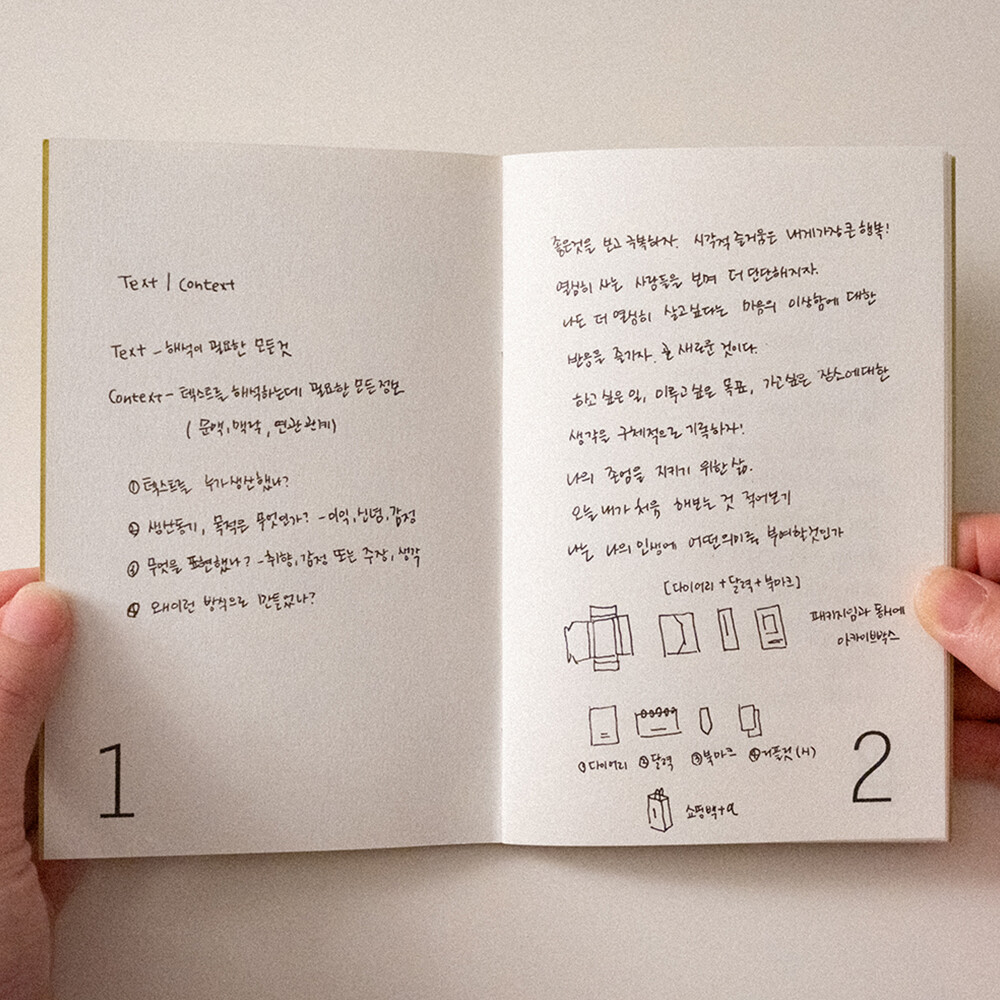 Text | Context
Text – 해석이 필요한 모든것
Context – 텍스트를 해석하는데 필요한 모든 정보
(문맥, 맥락, 연관관계)
① 텍스트를 누가 생산했나?
② 생산동기, 목적은 무엇인가? – 이익, 신념, 감정
③ 무엇을 표현했나? – 취향, 감정 또는 주장, 생각
④ 왜 이런 방식으로 만들었나?
1
좋은것을 보고 극복하자. 시각적 즐거움은 내게 가장 큰 행복!
열심히 사는 사람들을 보며 더 단단해지자.
나도 더 열심히 살고싶다는 마음의 이상함에 대한
반응을 즐기자. 곧 새로운 것이다.
하고 싶은 일, 이루고 싶은 목표, 가고싶은 장소에대한
생각을 구체적으로 기록하자!
나의 존엄을 지키기 위한 삶.
오늘 내가 처음 해보는 것 적어보기
나는 나의 인생에 어떤 의미를 부여할것인가
[다이어리 + 달력 + 북마크]
패키지임과 동시에
아카이브박스
① 다이어리 ② 달력 ③ 북마크 ④ (시)
쇼핑백 + α
2